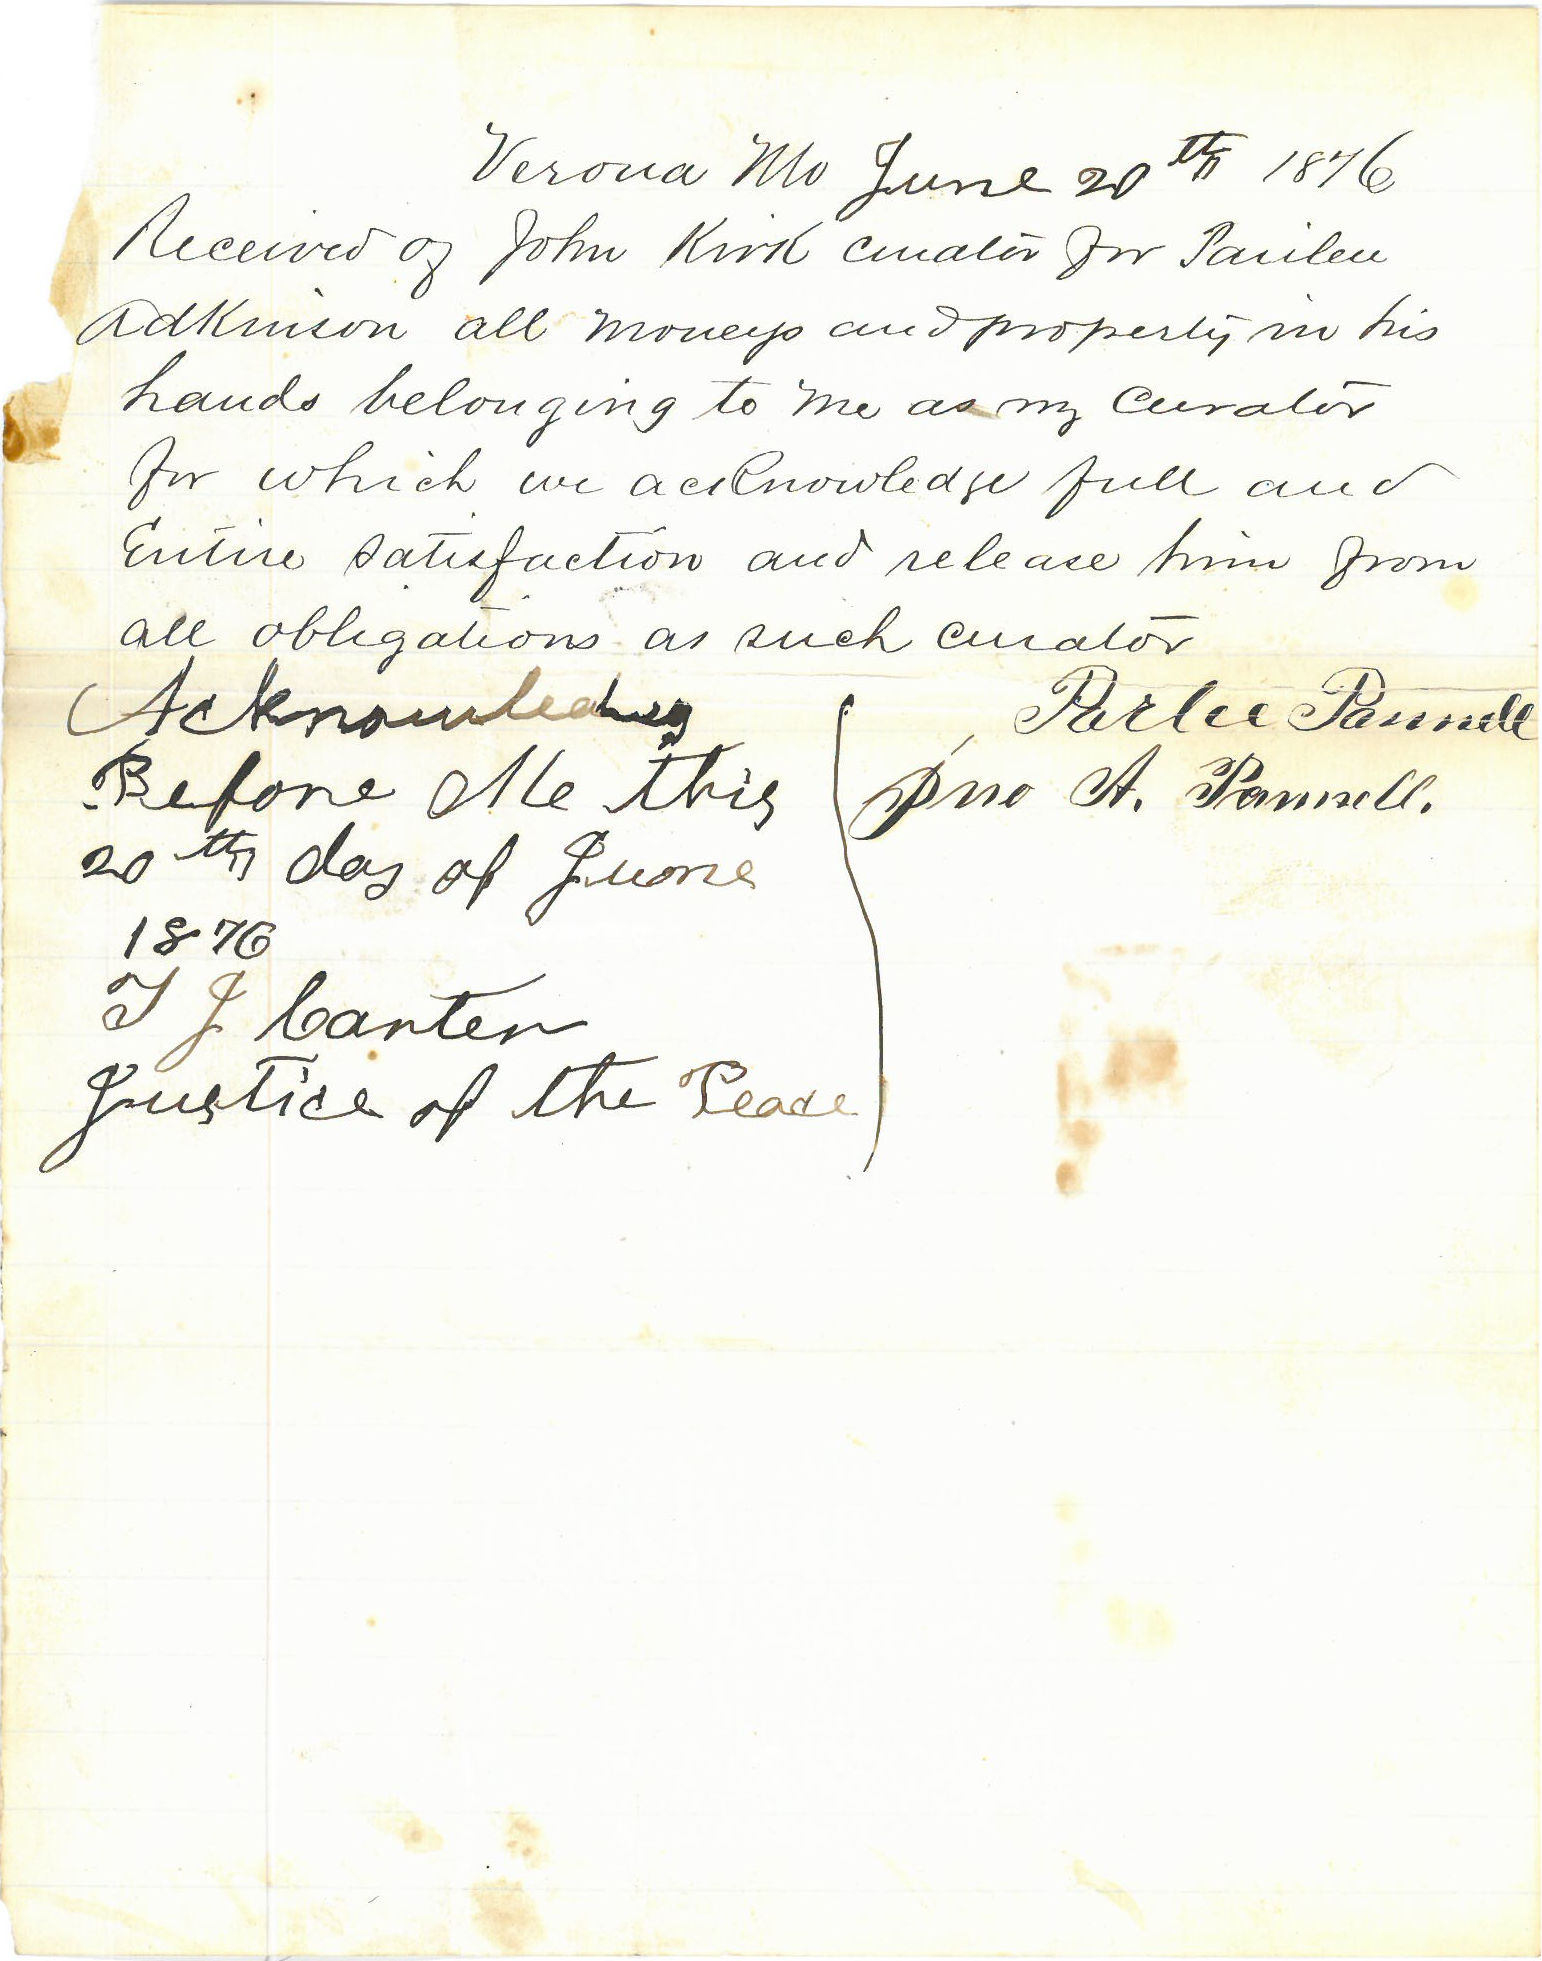 Verona Mo June 20th 1876
Received of John Kirk curator for Parilee
Adkinson all moneys and property in his
hands belonging to me as my Curator
for which we acknowledge full and
Entire satisfaction and release him from
all obligations as such curator
Parlee Pannell
Jno A. Pannell.
Before Me this
20th day of Juone
1876
T J Carter
Justice of the Peace